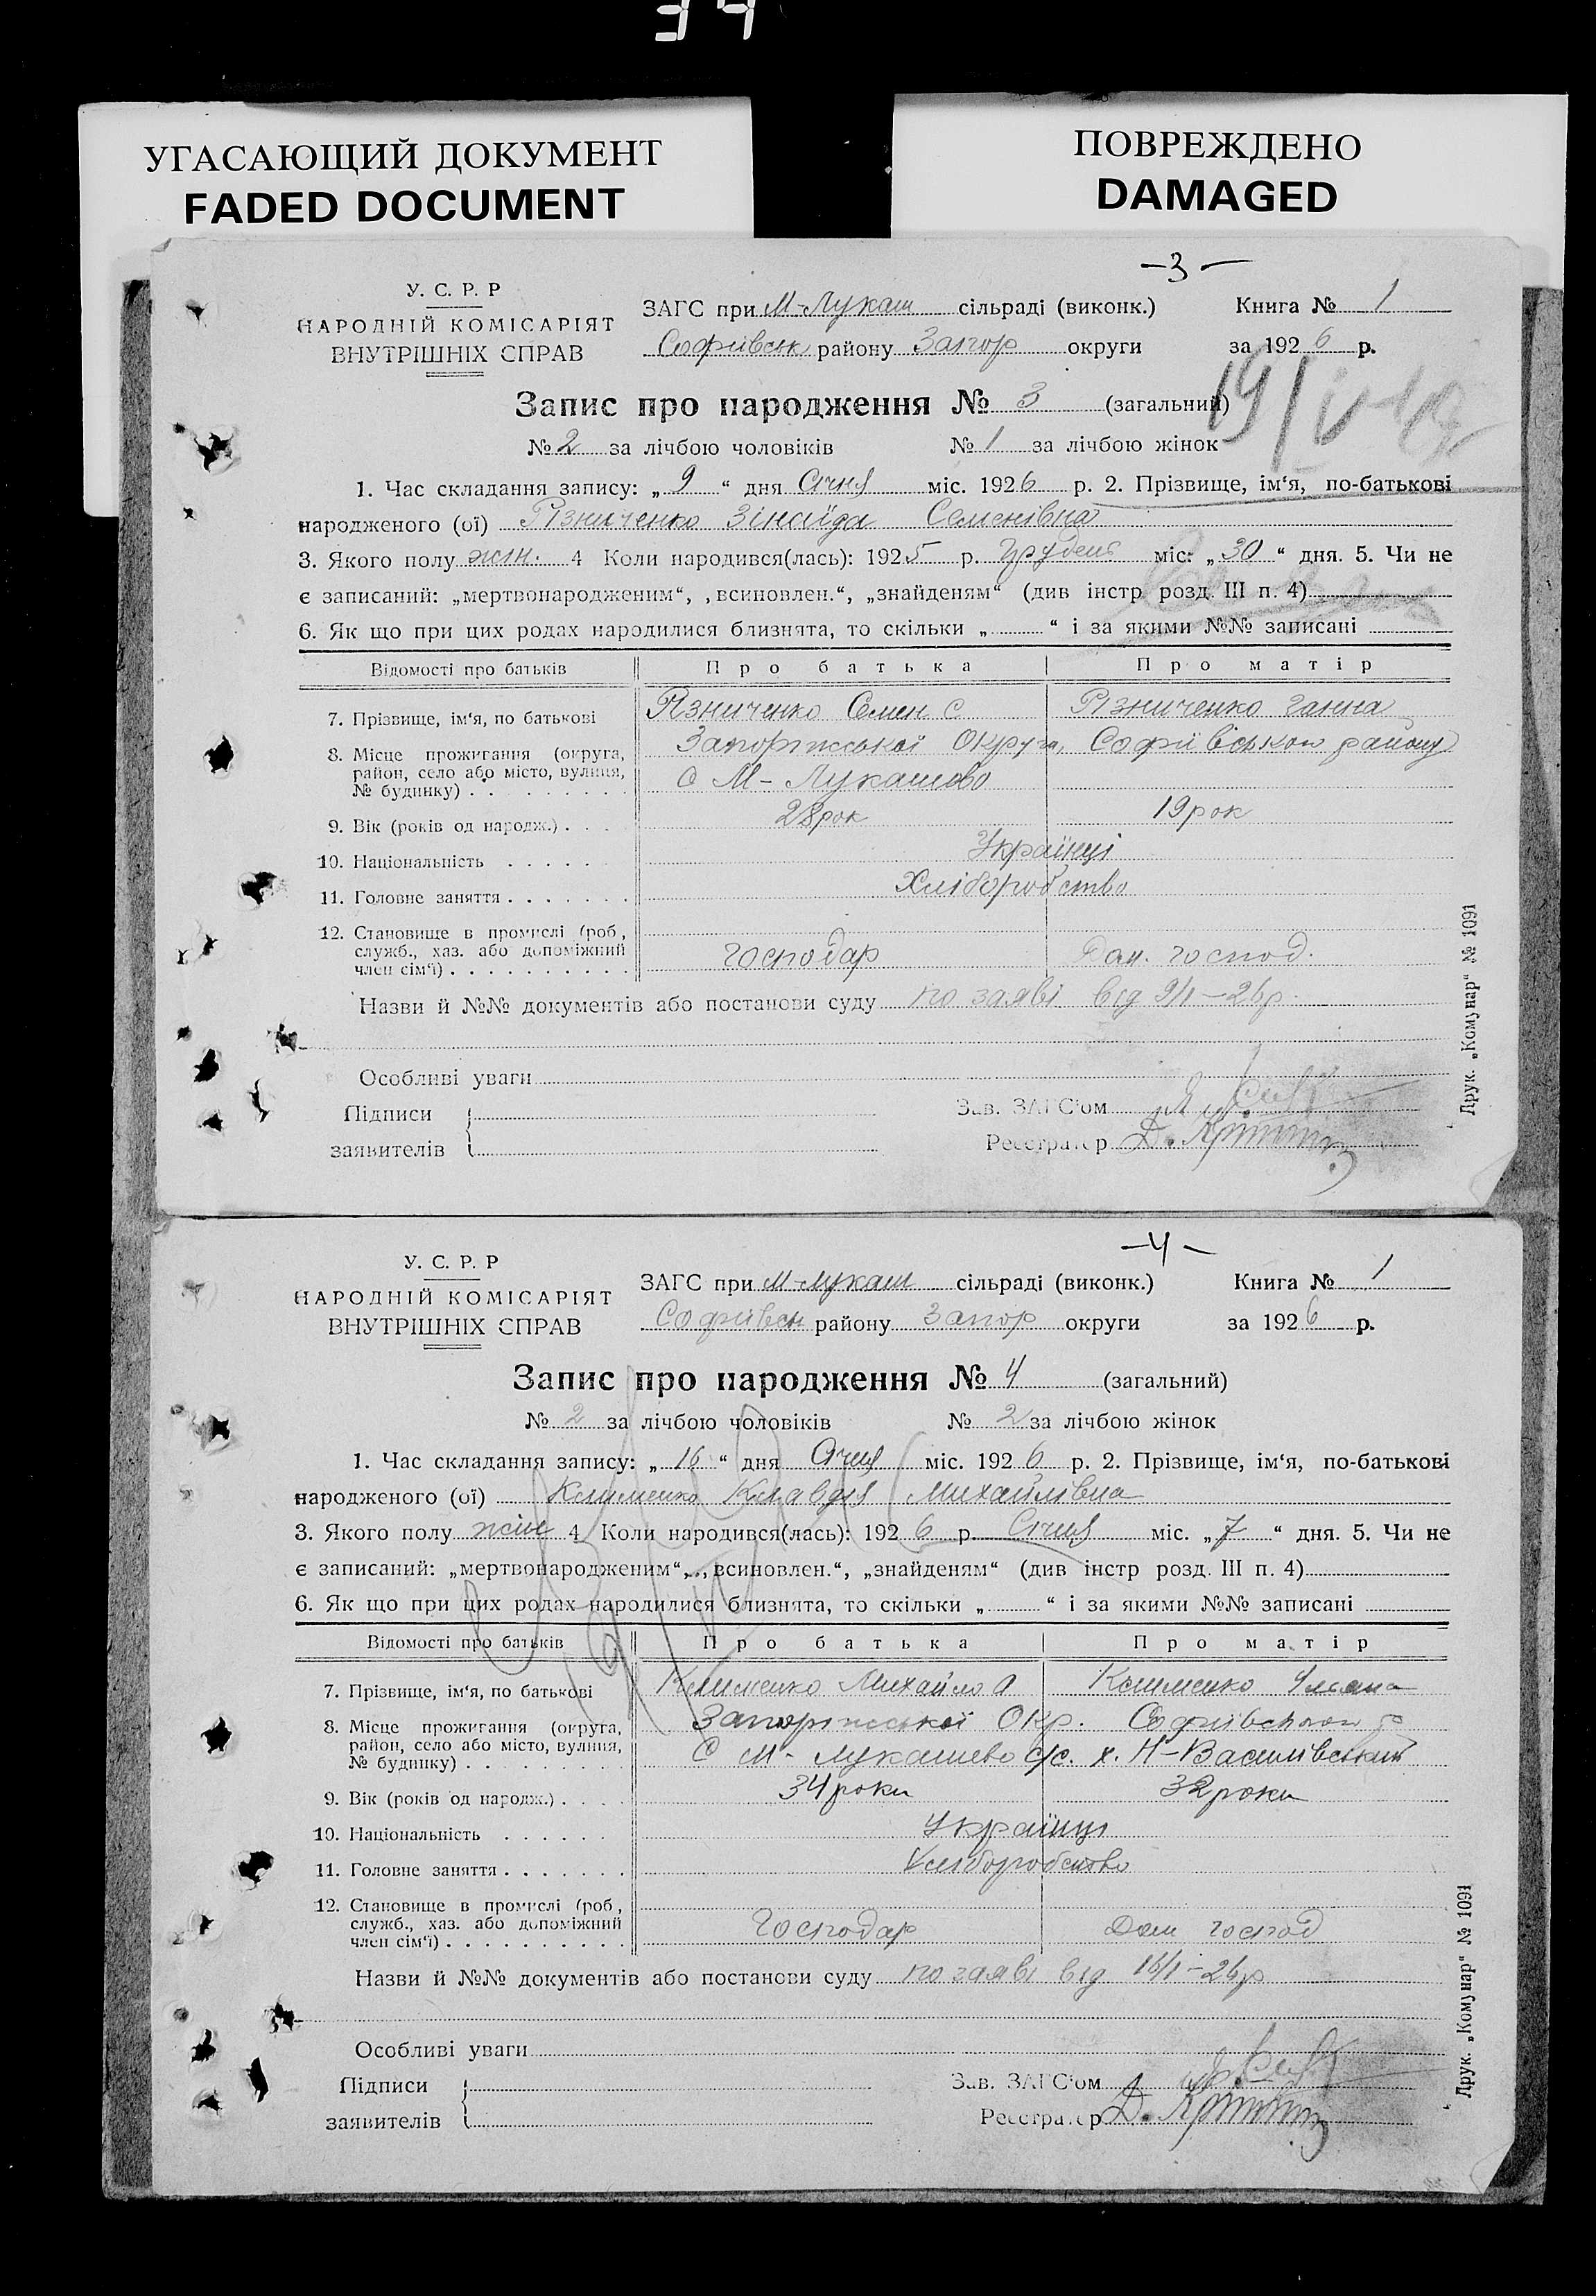 34
УГАСАЮЩИЙ ДОКУМЕНТ
FADED DOCUMENT
ПОВРЕЖДЕНО
DAMAGED
-3-
У. С. Р. Р
НАРОДНІЙ КОМІСАРІЯТ
ВНУТРІШНІХ СПРАВ
ЗАГС при М-Лукаш сільраді (виконк.)
Софиївськ району Запор округи
Книга № 1
за 1926 р.
Запис про народження № 3 (загальний)
№ 2 за лічбою чоловіків № 1 за лічбою жінок
1. Час складання запису: „9“ дня Січня міс. 1926 р. 2. Прізвище, ім‘я, по-батькові
народженого (ої) Різниченко Зінаїда Семенівна
3. Якого полу жін. 4 Коли народився(лась): 1925 р. Грудень міс: „30“ дня. 5. Чи не
є записаний: „мертвонародженим“, „всиновлен.“, „знайденям“ (див інстр розд. III п. 4)
6. Як що при цих родах народилися близнята, то скільки „ “ і за якими №№ записані
Відомості про батьків Про батька Про матір
7. Прізвище, ім‘я, по батькові Різниченко Семен С Різниченко Ганна
8. Місце прожигання (округа, район, село або місто, вулиця, № будинку) Запоріжської Округи, Софиївського району
с М-Лукашово
9. Вік (років од народж.) 28 рок 19 рок
10. Національність Українці
11. Головне заняття Хліборобство
12. Становище в промислі (роб, служб., хаз. або допоміжний член сім‘ї) господар Дом. господ.
Назви й №№ документів або постанови суду по заяві від 9/1-26р.
Особливі уваги
Підписи
заявителів
Зав. ЗАГС‘ом
Реєстратор Д.
Друк. „Комунар“ № 1091
-4-
У. С. Р. Р
НАРОДНІЙ КОМІСАРІЯТ
ВНУТРІШНІХ СПРАВ
ЗАГС при М-Лукаш сільраді (виконк.)
Софиївськ району Запор округи
Книга № 1
за 1926 р.
Запис про народження № 4 (загальний)
№ 2 за лічбою чоловіків № 2 за лічбою жінок
1. Час складання запису: „16“ дня Січня міс. 1926 р. 2. Прізвище, ім‘я, по-батькові
народженого (ої) Клименко Клавдія Михайлівна
3. Якого полу жін 4 Коли народився(лась): 1926 р. Січня міс. „7“ дня. 5. Чи не
є записаний: „мертвонародженим“, „всиновлен.“, „знайденям“ (див інстр розд. III п. 4)
6. Як що при цих родах народилися близнята, то скільки „ “ і за якими №№ записані
Відомості про батьків Про батька Про матір
7. Прізвище, ім‘я, по батькові Клименко Михайло О Клименко Уляна
8. Місце прожигання (округа, район, село або місто, вулиця, № будинку) Запоріжської Окр. Софиївського р
с М-Лукашево с/с. х. Н-Василівський
9. Вік (років од народж.) 34 роки 32 роки
10. Національність Українці
11. Головне заняття Хліборобство
12. Становище в промислі (роб, служб., хаз. або допоміжний член сім‘ї) Господар Дом господ
Назви й №№ документів або постанови суду по заяві від 16/1-26р
Особливі уваги
Підписи
заявителів
Зав. ЗАГС‘ом
Реєстратор Д.
Друк. „Комунар“ № 1091